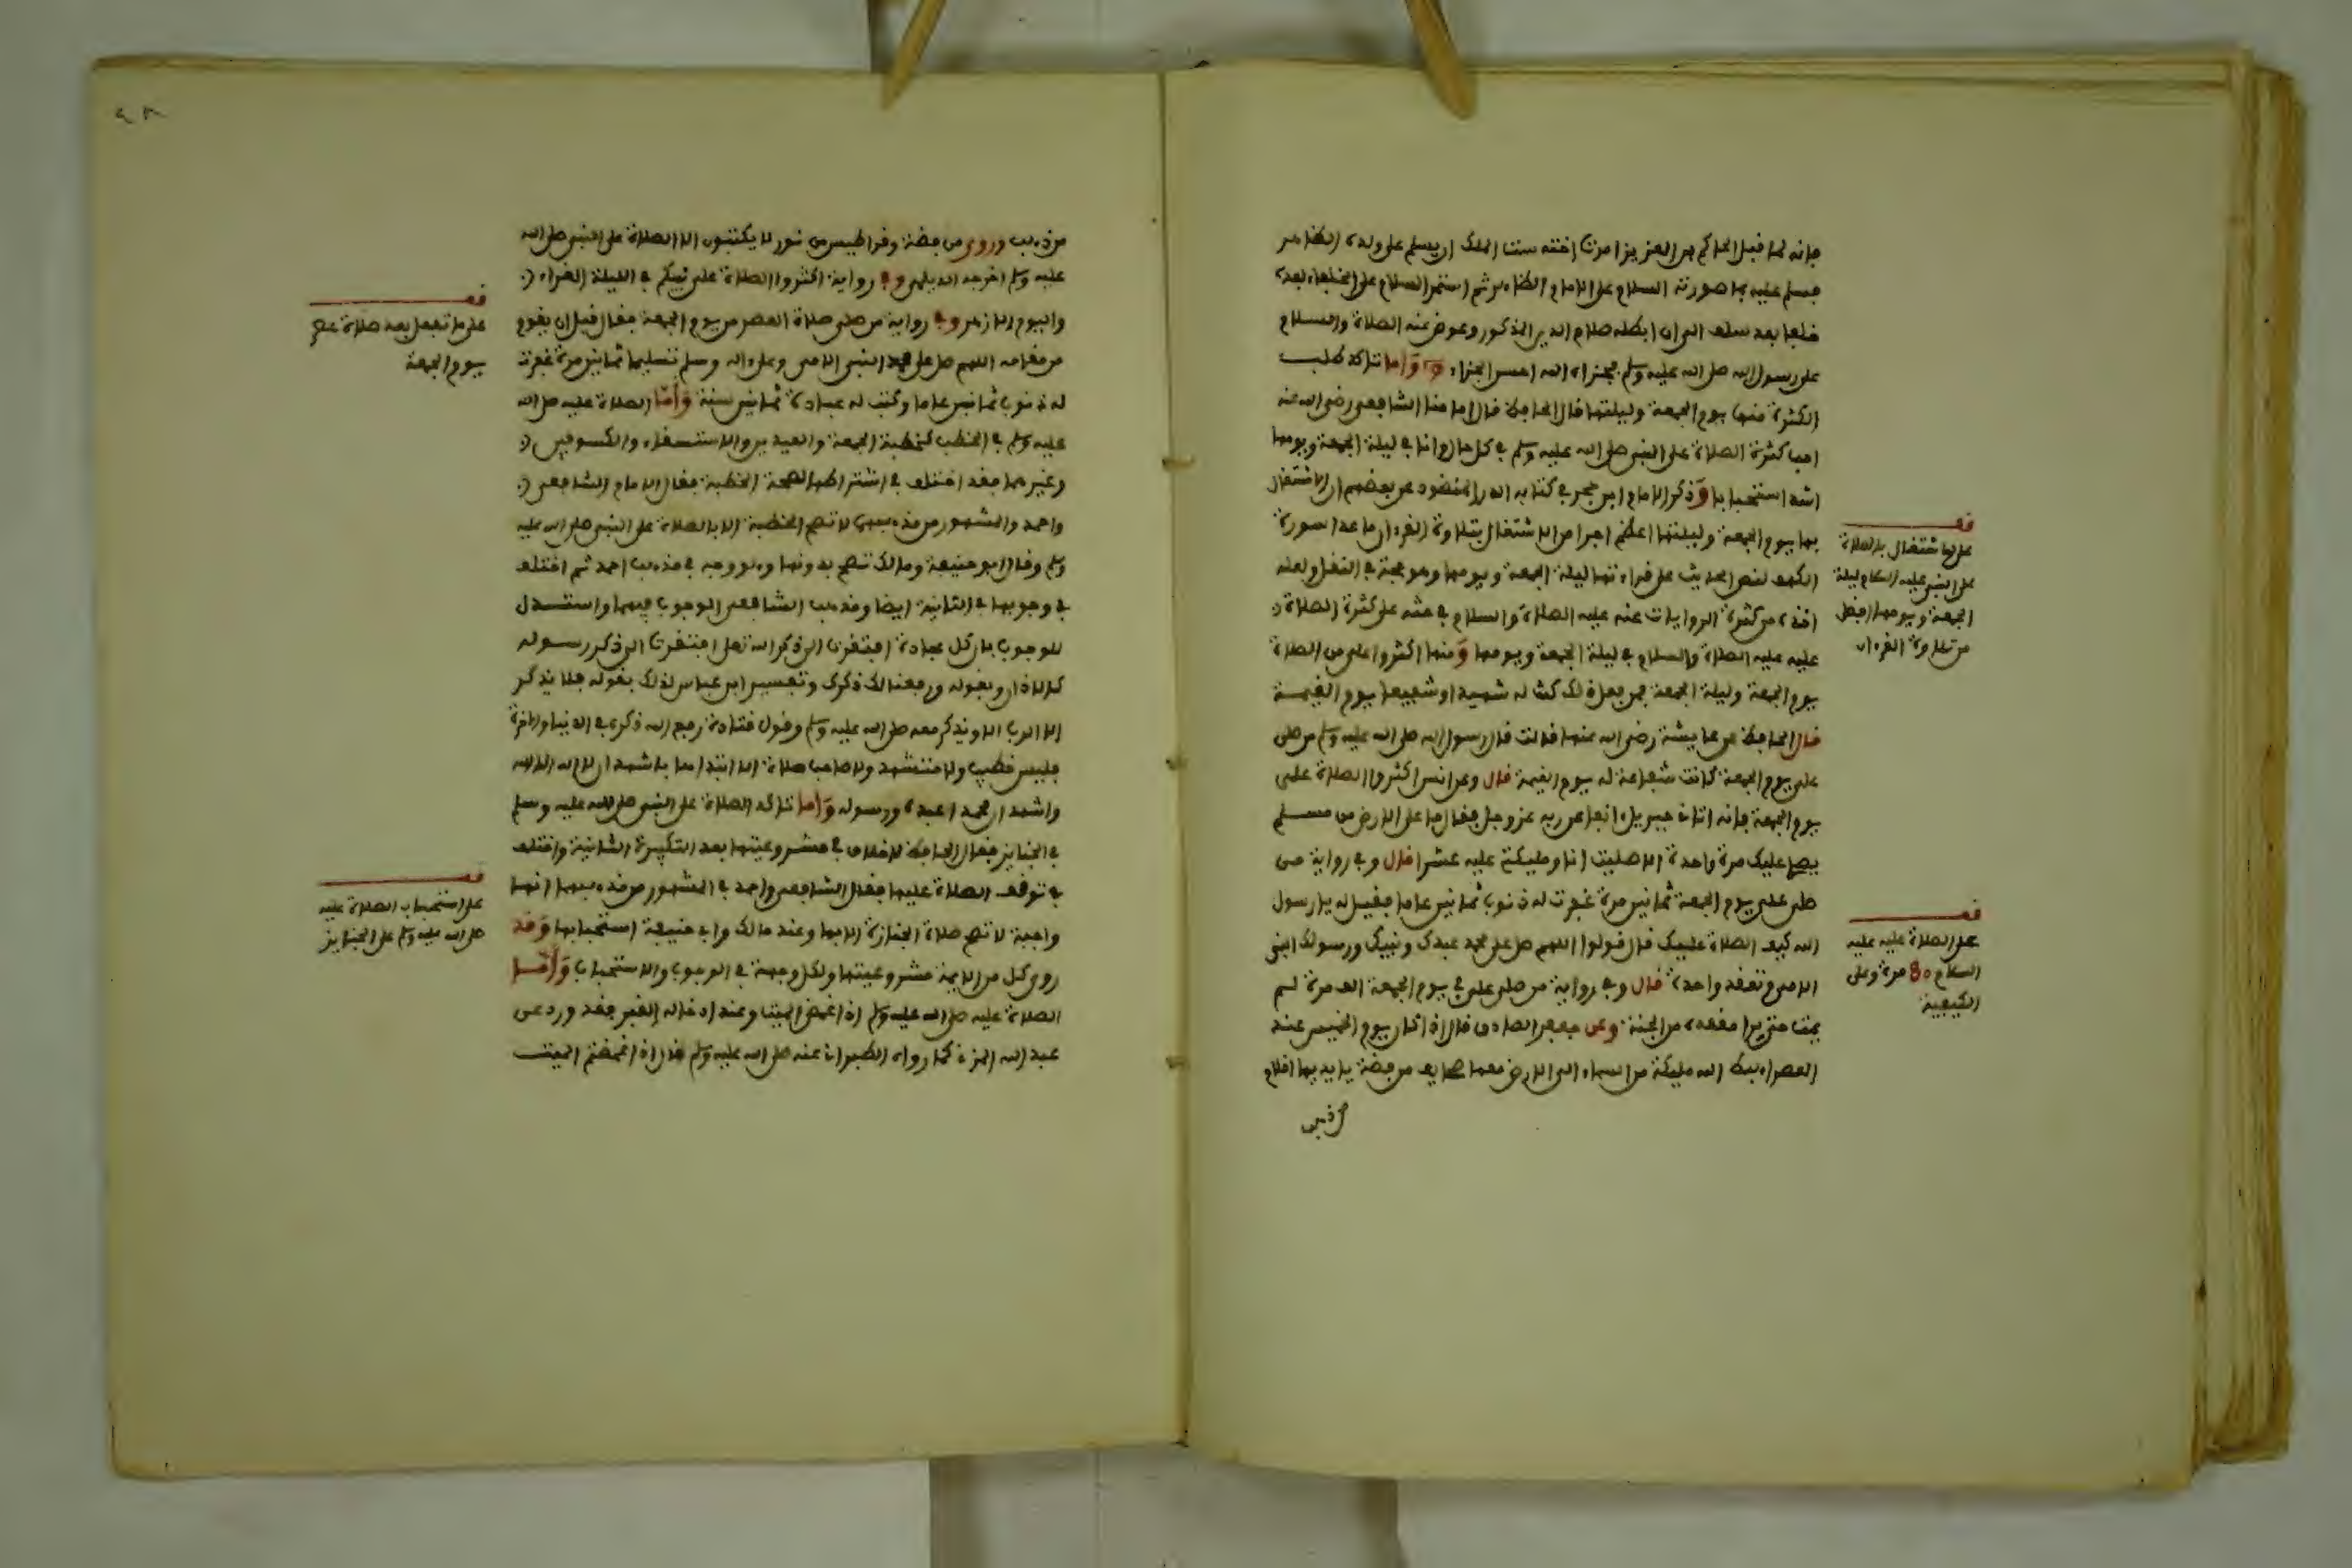 فإنه لما قتل الحاكم بن العزيز امرت اخته ست الملك ان يسلم على ولده الظاهر
فسلم عليه بما صورته السلام على الامام الظاهر ثم استمر السلام على الخلفاء بعده
خلفا بعد سلف الى ان ابطله صلاح الدين المذكور وعوض عنه الصلاة والسلام
على رسول الله صلى الله عليه وسلم فجزاه الله احسن الجزاء واما تأكد طلب
الكثرة منها يوم الجمعة وليلتها قال الحافظ قال امامنا الشافعي رضي الله عنه
احب كثرة الصلاة على النبي صلى الله عليه وسلم في كل حال وانا في ليلة الجمعة ويومها
اشد استحبابا وذكر الامام ابن حجر في كتابه الدر المنضود عن بعضهم ان الاشتغال
بها يوم الجمعة وليلتها اعظم اجرا من الاشتغال بتلاوة القرءان ما عدا سورة
الكهف لنص الحديث على قراءتها ليلة الجمعة ويومها وهو حجة في النقل ولعله
اخذه من كثرة الروايات عنه عليه الصلاة والسلام في حثه على كثرة الصلاة
عليه عليه الصلاة والسلام في ليلة الجمعة ويومها ومنها اكثروا علي من الصلاة
يوم الجمعة وليلة الجمعة فمن فعل ذلك كنت له شهيدا وشفيعا يوم القيمة
قال الحافظ عن عايشة رضي الله عنها قالت قال رسول الله صلى الله عليه وسلم من صلى
علي يوم الجمعة كانت شفاعة له يوم القيمة قال وعن انس اكثروا الصلاة علي
يوم الجمعة فإنه اتاني جبريل ءانفا عن ربه عز وجل فقال ما على الارض من مسلم
يصل عليك مرة واحدة الا صليت انا وملئكتي عليه عشرا قال وفي رواية من
صلى علي يوم الجمعة ثمانين مرة غفرت له ذنوب ثمانين عاما فقيل له يا رسول
الله كيف الصلاة عليك قال قولوا اللهم صل على محمد عبدك ونبيك ورسولك النبي
الامي وتعقد واحدة قال وفي رواية من صلى علي في يوم الجمعة الف مرة لم
يمت حتى يرا مقعده من الجنة وعن جعفر الصادق قال اذا كان يوم الخميس عند
العصر اهبط الله ملئكة من السماء الى الارض معها صحايف من فضة بايديها اقلام
قف
على ان الاشتغال بالصلاة
على النبي عليه السلام ليلة
الجمعة ويومها افضل
من تلاوة القرءان
قف
على الصلاة عليه عليه
السلام 80 مرة وعلى
الكيفية
من ذهب وروي من فضة وقراطيس من نور لا يكتبون الا الصلاة على النبي صلى الله
عليه وسلم اخرجه الديلمي وفي رواية اكثروا الصلاة على نبيكم في الليلة الغراء
واليوم الازهر وفي رواية من صلى صلاة العصر من يوم الجمعة فقال قبل ان يقوم
من مقامه اللهم صل على محمد النبي الامي وعلى ءاله وسلم تسليما ثمانين مرة غفرت
له ذنوب ثمانين عاما وكتبت له عبادة ثمانين سنة واما الصلاة عليه صلى الله
عليه وسلم في الخطب كخطبة الجمعة والعيدين والاستسقاء والكسوفين
وغيرهما فقد اختلف في اشتراطها لصحة الخطبة فقال الامام الشافعي
واحمد والمشهور من مذهبهما لا تصح الخطبة الا بالصلاة على النبي صلى الله عليه
وسلم وقال ابو حنيفة ومالك تصح بدونها وهو وجه في مذهب احمد ثم اختلف
في وجوبها في الثانية ايضا ومذهب الشافعي الوجوب فيهما واستدل
للوجوب بان كل عبادة افتقرت الى ذكر الله تعلى افتقرت الى ذكر رسوله
كالاذان وبقوله ورفعنا لك ذكرك وتفسير ابن عباس لذلك بقوله فلا يذكر
الا الرب الا ويذكر معه صلى الله عليه وسلم وقول قتادة رفع الله ذكره في الدنيا والاخرة
فليس خطيب ولا متشهد ولا صاحب صلاة الا ابتداها باشهد ان لا اله الا الله
واشهد ان محمدا عبده ورسوله واما تاكد الصلاة على النبي صلى الله عليه وسلم
في الجنايز فقال الحافظ لا خلاف في مشروعيتها بعد التكبيرة الثانية واختلف
في توقف الصلاة عليها فقال الشافعي واحمد في المشهور من مذهبيهما انها
واجبة لا تصح صلاة الجنازة الا بها وعند مالك وابي حنيفة استحبابها وقد
روى كل من الايمة مشروعيتها ولكل وجهة في الوجوب والاستحباب واما
الصلاة عليه صلى الله عليه وسلم اذا غمض الميت وعند ادخاله القبر فقد ورد عن
عبد الله المزني كما رواه الطبراني عنه صلى الله عليه وسلم قال اذا غمضتم الميت
قف
على ما تفعل بعد صلاة عصر
يوم الجمعة
قف
على استحباب الصلاة عليه
صلى الله عليه وسلم على الجنايز